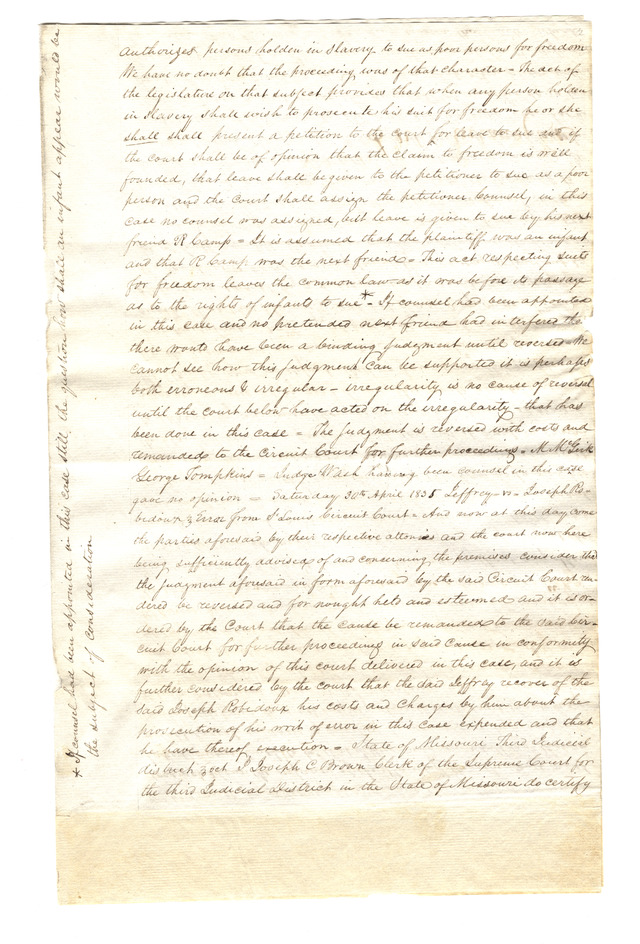 authorizes persons holden in slavery to sue as poor persons for freedom
We have no doubt that the proceeding was of that character = The act of
the legislature on that subject provides that when any person holden
in slavery shall wish to prosecute his suit for freedom he or she
shall shall present a petition to the court for leave to sue and if
the court shall be of opinion that the claim to freedom is well
founded, that leave shall be given to the petitioner to sue as a poor
person and the Court shall assign the petitioner Counsel, in this
case no counsel was assigned, but leave is given to sue by his next
friend R Camp = It is assumed that the plaintiff was an infant
and that R Camp was the next friend = This act respecting suits
for freedom leaves the common law as it was before its passage
as to the rights of infants to sue + = If counsel had been appointed
in this case and no pretended next friend had interfered
there would have been a binding judgment until reversed = We
cannot see how this judgment can be supported it is perhaps
both erroneous & irregular - irregularity is no cause of reversal
until the court below have acted on the irregularity - that has
been done in this case = The Judgment is reversed with costs and
remanded to the Circuit Court for further proceedings = M McGirk
George Tompkins = Judge Wash having been counsel in this case
gave no opinion = Saturday 30th April 1835 Jeffrey vs Joseph Ro-
bedoux } Error from St Louis Circuit Court = And now at this day come
the parties aforesaid by their respective attornies and the court now here
being sufficiently advised of and concerning the premises consider that
the Judgment aforesaid in form aforesaid by the said Circuit Court ren-
dered be reversed and for nought held and esteemed and it is or-
dered by the Court that the cause be remanded to the said Cir-
cuit Court for further proceedings in said cause in conformity
with the opinion of this court delivered in this case, and it is
further considered by the court that the said Jeffrey recover of the
said Joseph Robedoux his costs and charges by him about the
prosecution of his writ of error in this case expended and that
he have thereof execution = State of Missouri Third Judicial
district sct I Joseph C Brown Clerk of the Supreme Court for
the third Judicial District in the State of Missouri do certify
+ If counsel had been appointed in this case still the question how shall an infant appear would be
the subject of consideration